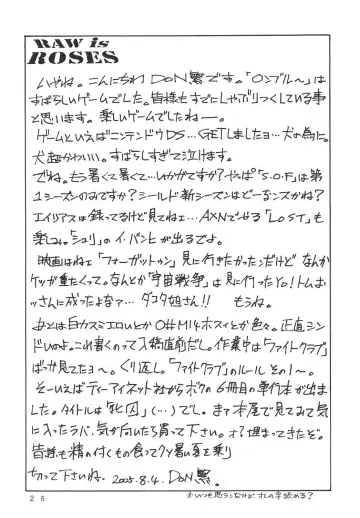 RAW is
ROSES
いやね。こんにちわ DoN繁です。「ロンブル〜」は
すばらしいゲームでした。皆様もすでにしゃぶりつくしている事
と思います。楽しいゲームでしたねー。
ゲームといえばニンテンドウDS…GETしましたョ…犬の為に。
犬超かわいい。すばらしすぎて泣けます。
でね。もう暑くて暑くて…いかがですか?やっぱ「S.O.F」は第
1シーズンのみですか?シールド新シーズンはどーなンスかね?
エイリアスは録ってるけど見てねェ…AXNでやる「LOST」も
楽しみ。「シュリ」のイ・パンヒが出るでよ。
映画はねェ「フォーガットゥン」見に行きたかったンだけど なんか
ケツが重たくって。なんとか「宇宙戦争」は見に行ったYo!トムお
ッさんに成ったよなァ… ダコタ姐さん!! もうね。
あとは白カスミエロいとか O#M14ホスィとか色々。正直シン
ドいのよ。これ書くのって入稿直前だし。作業中は「ファイトクラブ」
ばっか見てたョ〜。くり返し。「ファイトクラブ」のルール その1〜。
そーいえばティーアイネット社からボクの6冊目の単行本が出ま
した。タイトルは「死囚」(…)でし。まァ本屋で見てみて気
に入ったラバ、気が向いたら買って下さい。オ?埋まってきたぞ。
皆様も精の付くもの食ってクソ暑い夏を乗り
切って下さいね。2005.8.4. DoN繁.
※いつも思うンだけど、オレの字読める?
26